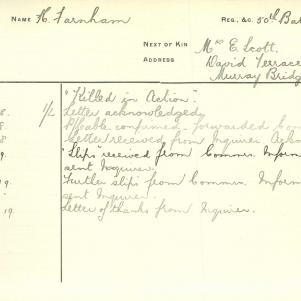 NAME H. Farnham REG., &C. 50th Bat
NEXT OF KIN Mrs E. Scott.
ADDRESS David Terrace
Murray Bridg
8. 1/2 "Killed in Action".
8. Letter acknowledged
8 confirmed. forwarded
8 Letter received from Inquirer.
9. "Slips" received from Commr. Inform
sent Inquirer.
19. Further slips from Commr. Inform
sent Inquirer.
19. Letter of thanks from Inquirer.